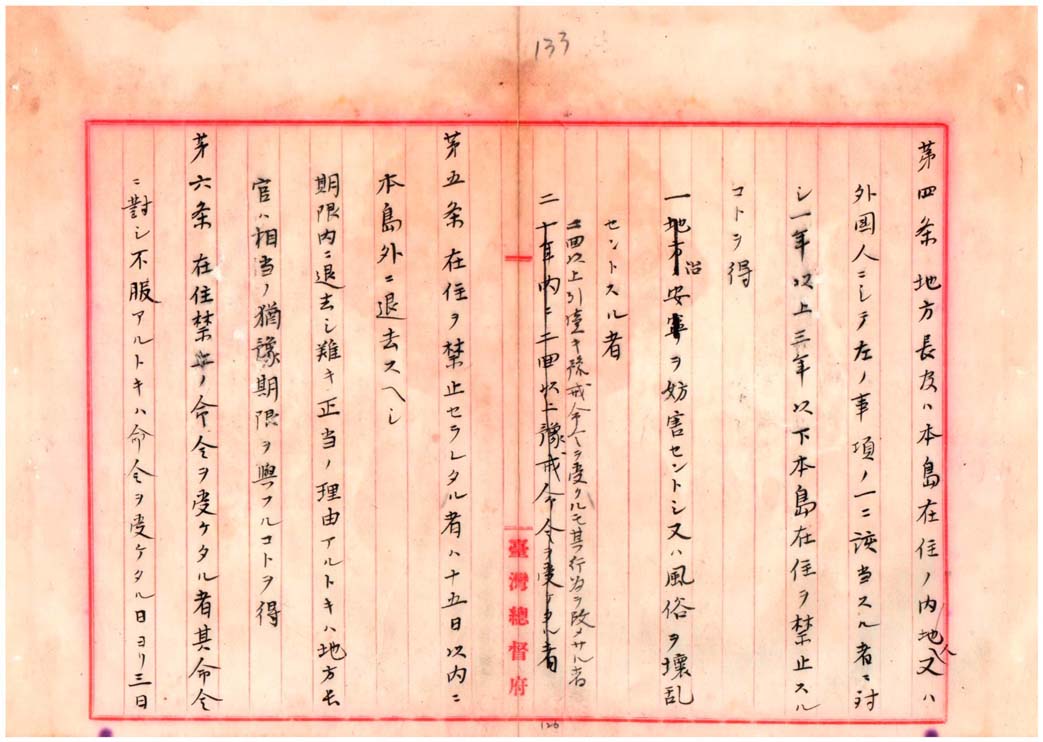 133
第四条 地方長及ハ本島在住ノ内地人又ハ
外国人ニシテ左ノ事項ノ一ニ該当スル者ニ対
シ一年以上三年以下本島在住ヲ禁止スル
コトヲ得
一 地方治ノ安寧ヲ妨害セントシ又ハ風俗ヲ壊乱
セントスル者
二回以上引續キ豫戒命令ヲ受クルモ其行為ヲ改メサル者
二 十年内ニ二回以上豫戒命令ヲ受ケタル者
臺灣總督府
第五条 在住ヲ禁止セラレタル者ハ十五日以内ニ
本島外ニ退去スヘシ
期限内ニ退去シ難キ正当ノ理由アルトキハ地方長
官ハ相当ノ猶豫期限ヲ與フルコトヲ得
第六条 在住禁止ノ命令ヲ受ケタル者其命令
ニ對シ不服アルトキハ命令ヲ受ケタル日ヨリ三日
126